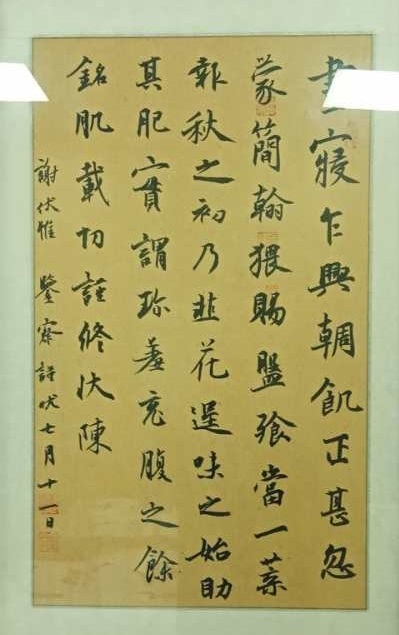 晝寢乍興輖飢正甚忽
蒙簡翰猥賜盤飧當一葉
報秋之初乃韭花逞味之始助
其肥實謂珍羞充腹之餘
銘肌載切謹修狀陳
謝伏惟 鑒察 謹狀七月十一日